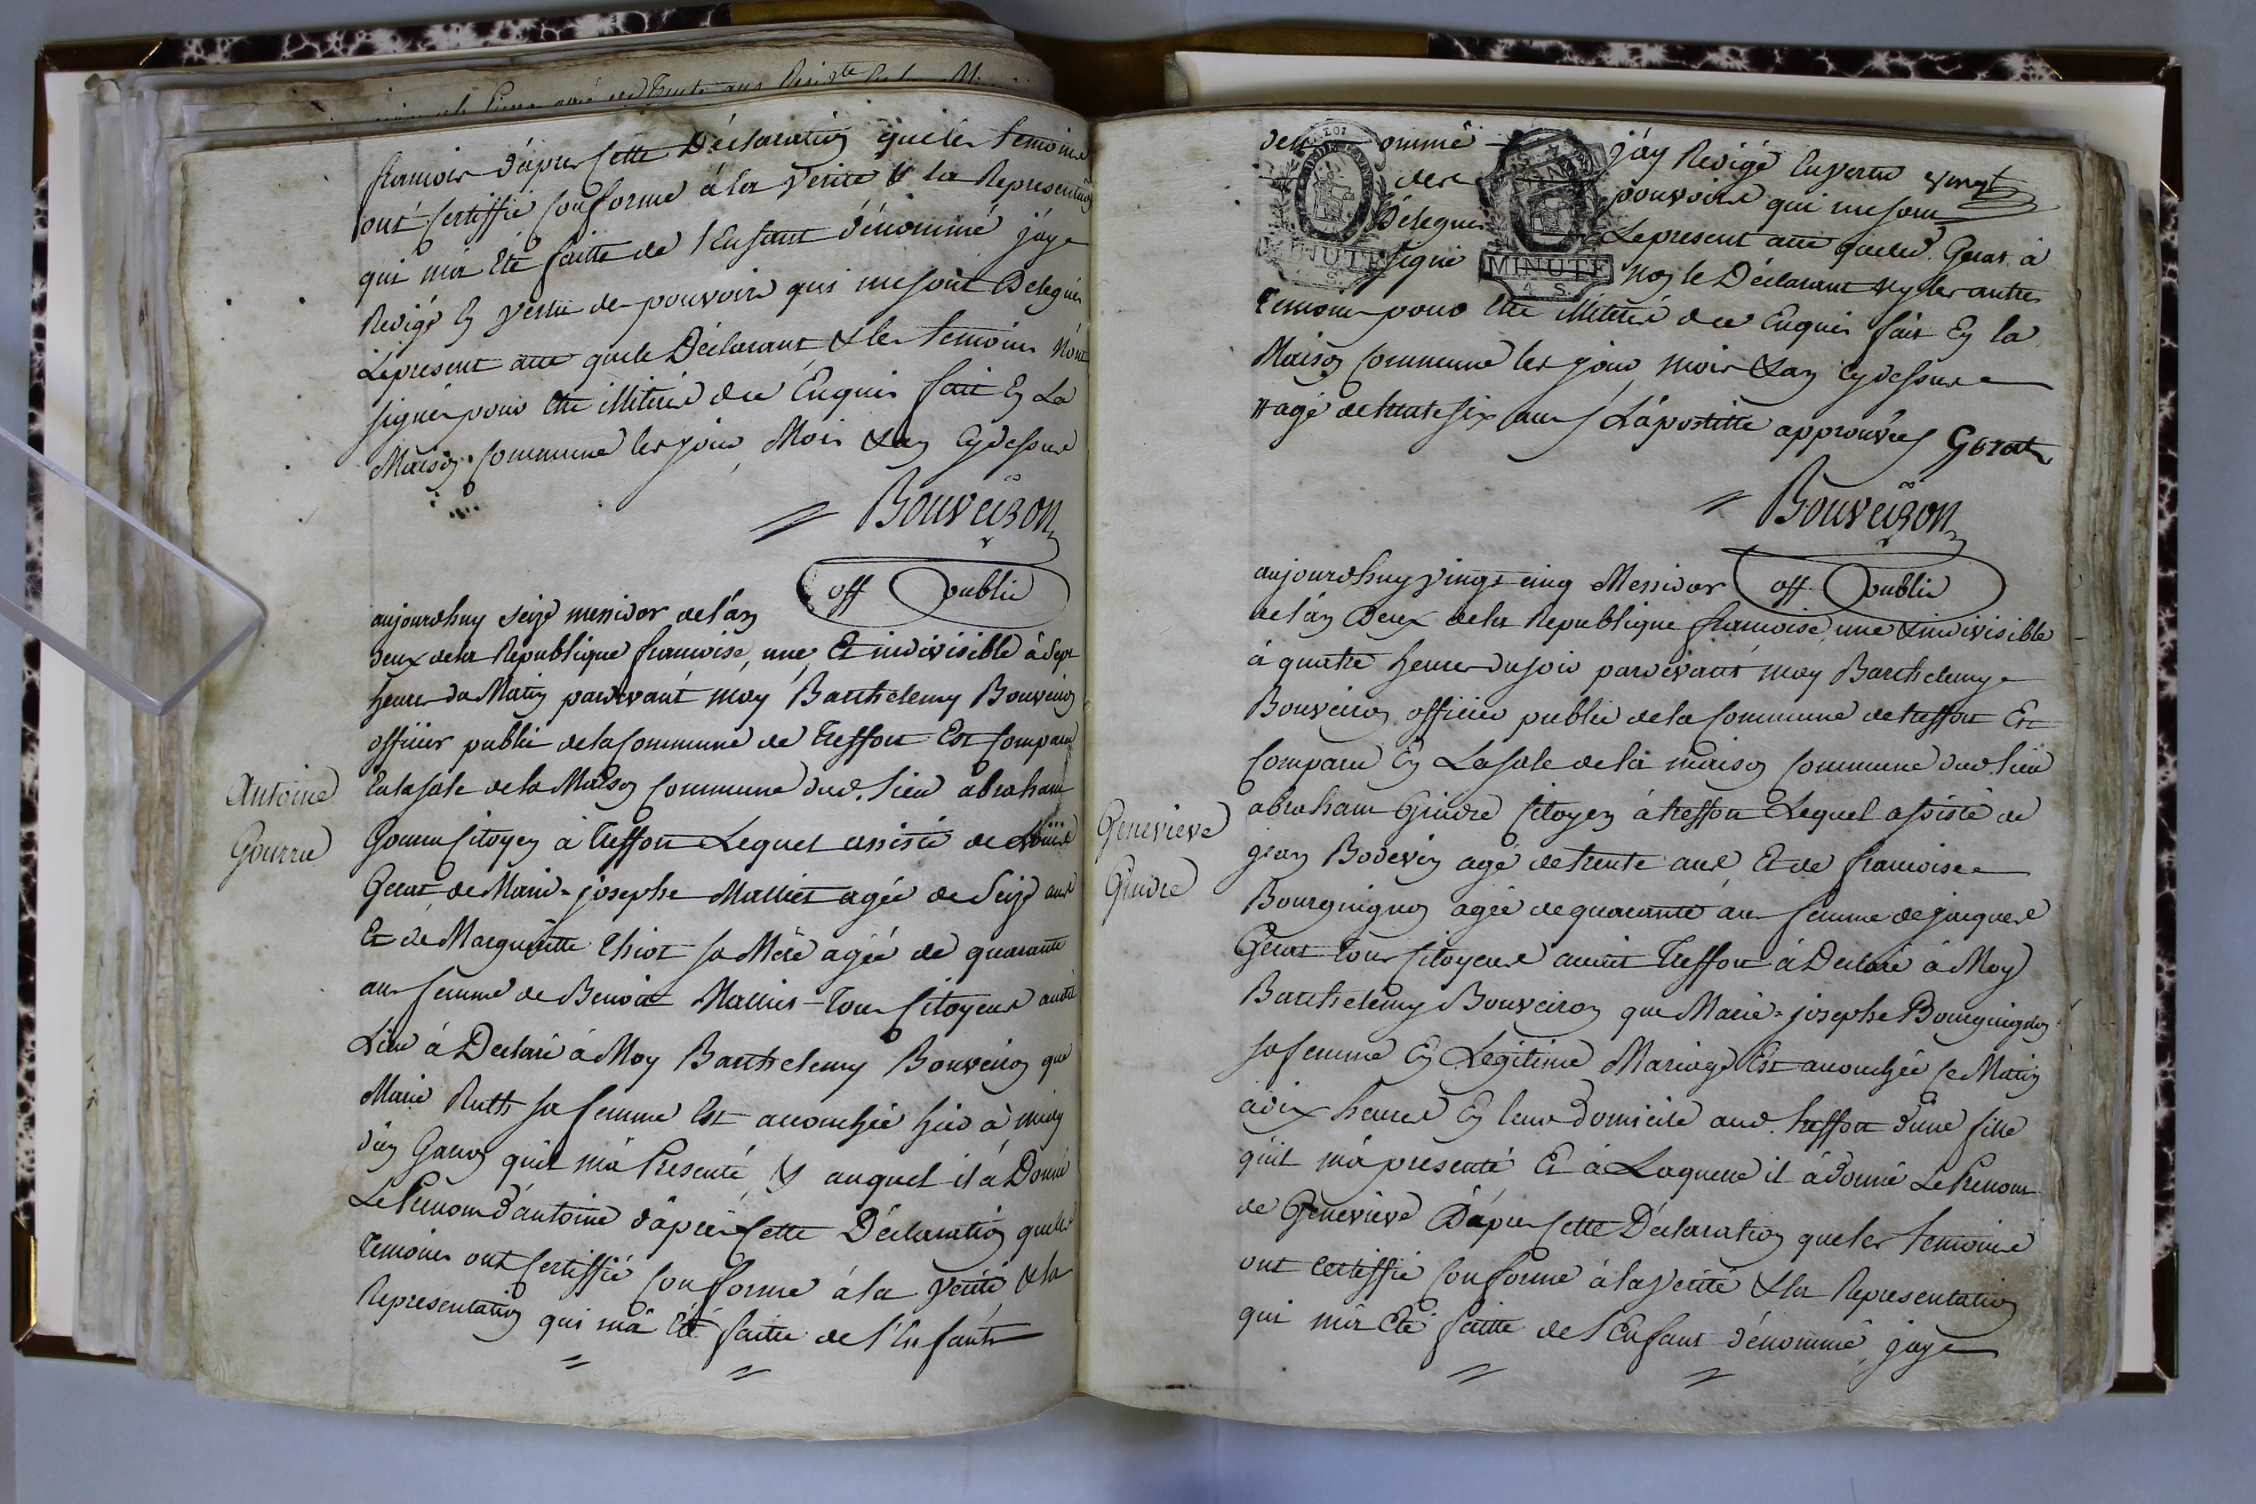 francois d'apres Cette Déclaration que les temoins
ont Certiffié Conforme à la verité & la Representaōn
qui m'a été faitte de l'Enfant dénommé j'ay
Redigé En vertu de pouvoirs qui me sont Delegués
Le present acte que le Déclarant & les temoins n'ont
signés pour Etre illiteré de ce Enquis fait En La
Maison Commune les jour Mois & an Cydessus
Bouveiron
off public
Antoine
Gourru
aujourdhuy seize messidor de l'an
deux de la Republique francoise, une Et indivisible à sept
heures du Matin pardevant moy Barthelemy Bouveiron
officier public de la Commune de treffort Est Comparu
En la sale de la Maison Commune dud. Lieu abraham
Gourru Citoyen à treffort Lequel assisté de
Gerat, de Marie-josephe Mallies agée de Seize ans
Et de Margueritte Thiot sa Mère agée de quarante
ans femme de Benoit Mallies - tous Citoyens audit
Lieu à Declaré à Moy Barthelemy Bouveiron que
Marie Ruth sa femme Est accouchée hier à midy
d'un Garcon qu'il m'à Presenté & auquel il à Donné
Le Prenom d'antoine d'apres Cette Déclaration que les
temoins ont Certiffié Conforme à la verité & la
Representation qui m'à Eté faitte de l'Enfant
MINUTE
denommé j'ay Redigé En vertu
des pouvoirs qui me sont
Délegués Le present acte que led. Gerat à
signé non le Déclarant ny les autres
temoins pour Etre illiteré de ce Enquis fait En la
Maison Commune les jour mois & an Cydessus
# agé de trente six ans / L'apostille approuvée / Gerat
Bouveiron
off. public
Genevieve
Gindre
aujourdhuy vingt cinq Messidor
de l'an Deux de la Republique francoise, une & indivisible
à quatre heures du soir pardevant moy Barthelemy
Bouveiron officier public de la Commune de treffort Est
Comparu En La sale de la maison Commune dud. Lieu
abraham Gindre Citoyen à treffort Lequel assisté de
jean Bodevin agé de trente ans Et de francoise
Bourguignon agée de quarante ans femme de jacques
Gerat tous Citoyens audit treffort à Declaré à Moy
Barthelemy Bouveiron que Marie-josephe Bourguignon
sa femme En Legitime Mariage Est accouchée Ce Matin
à dix heures En leur domicile aud. treffort d'une fille
qu'il m'à presenté Et à Laquelle il à donné Le Prenom
de Genevieve D'apres Cette Déclaration que les temoins
ont Certiffié Conforme à la verité & la Representation
qui m'a Eté faitte de l'Enfant dénommé, j'ay